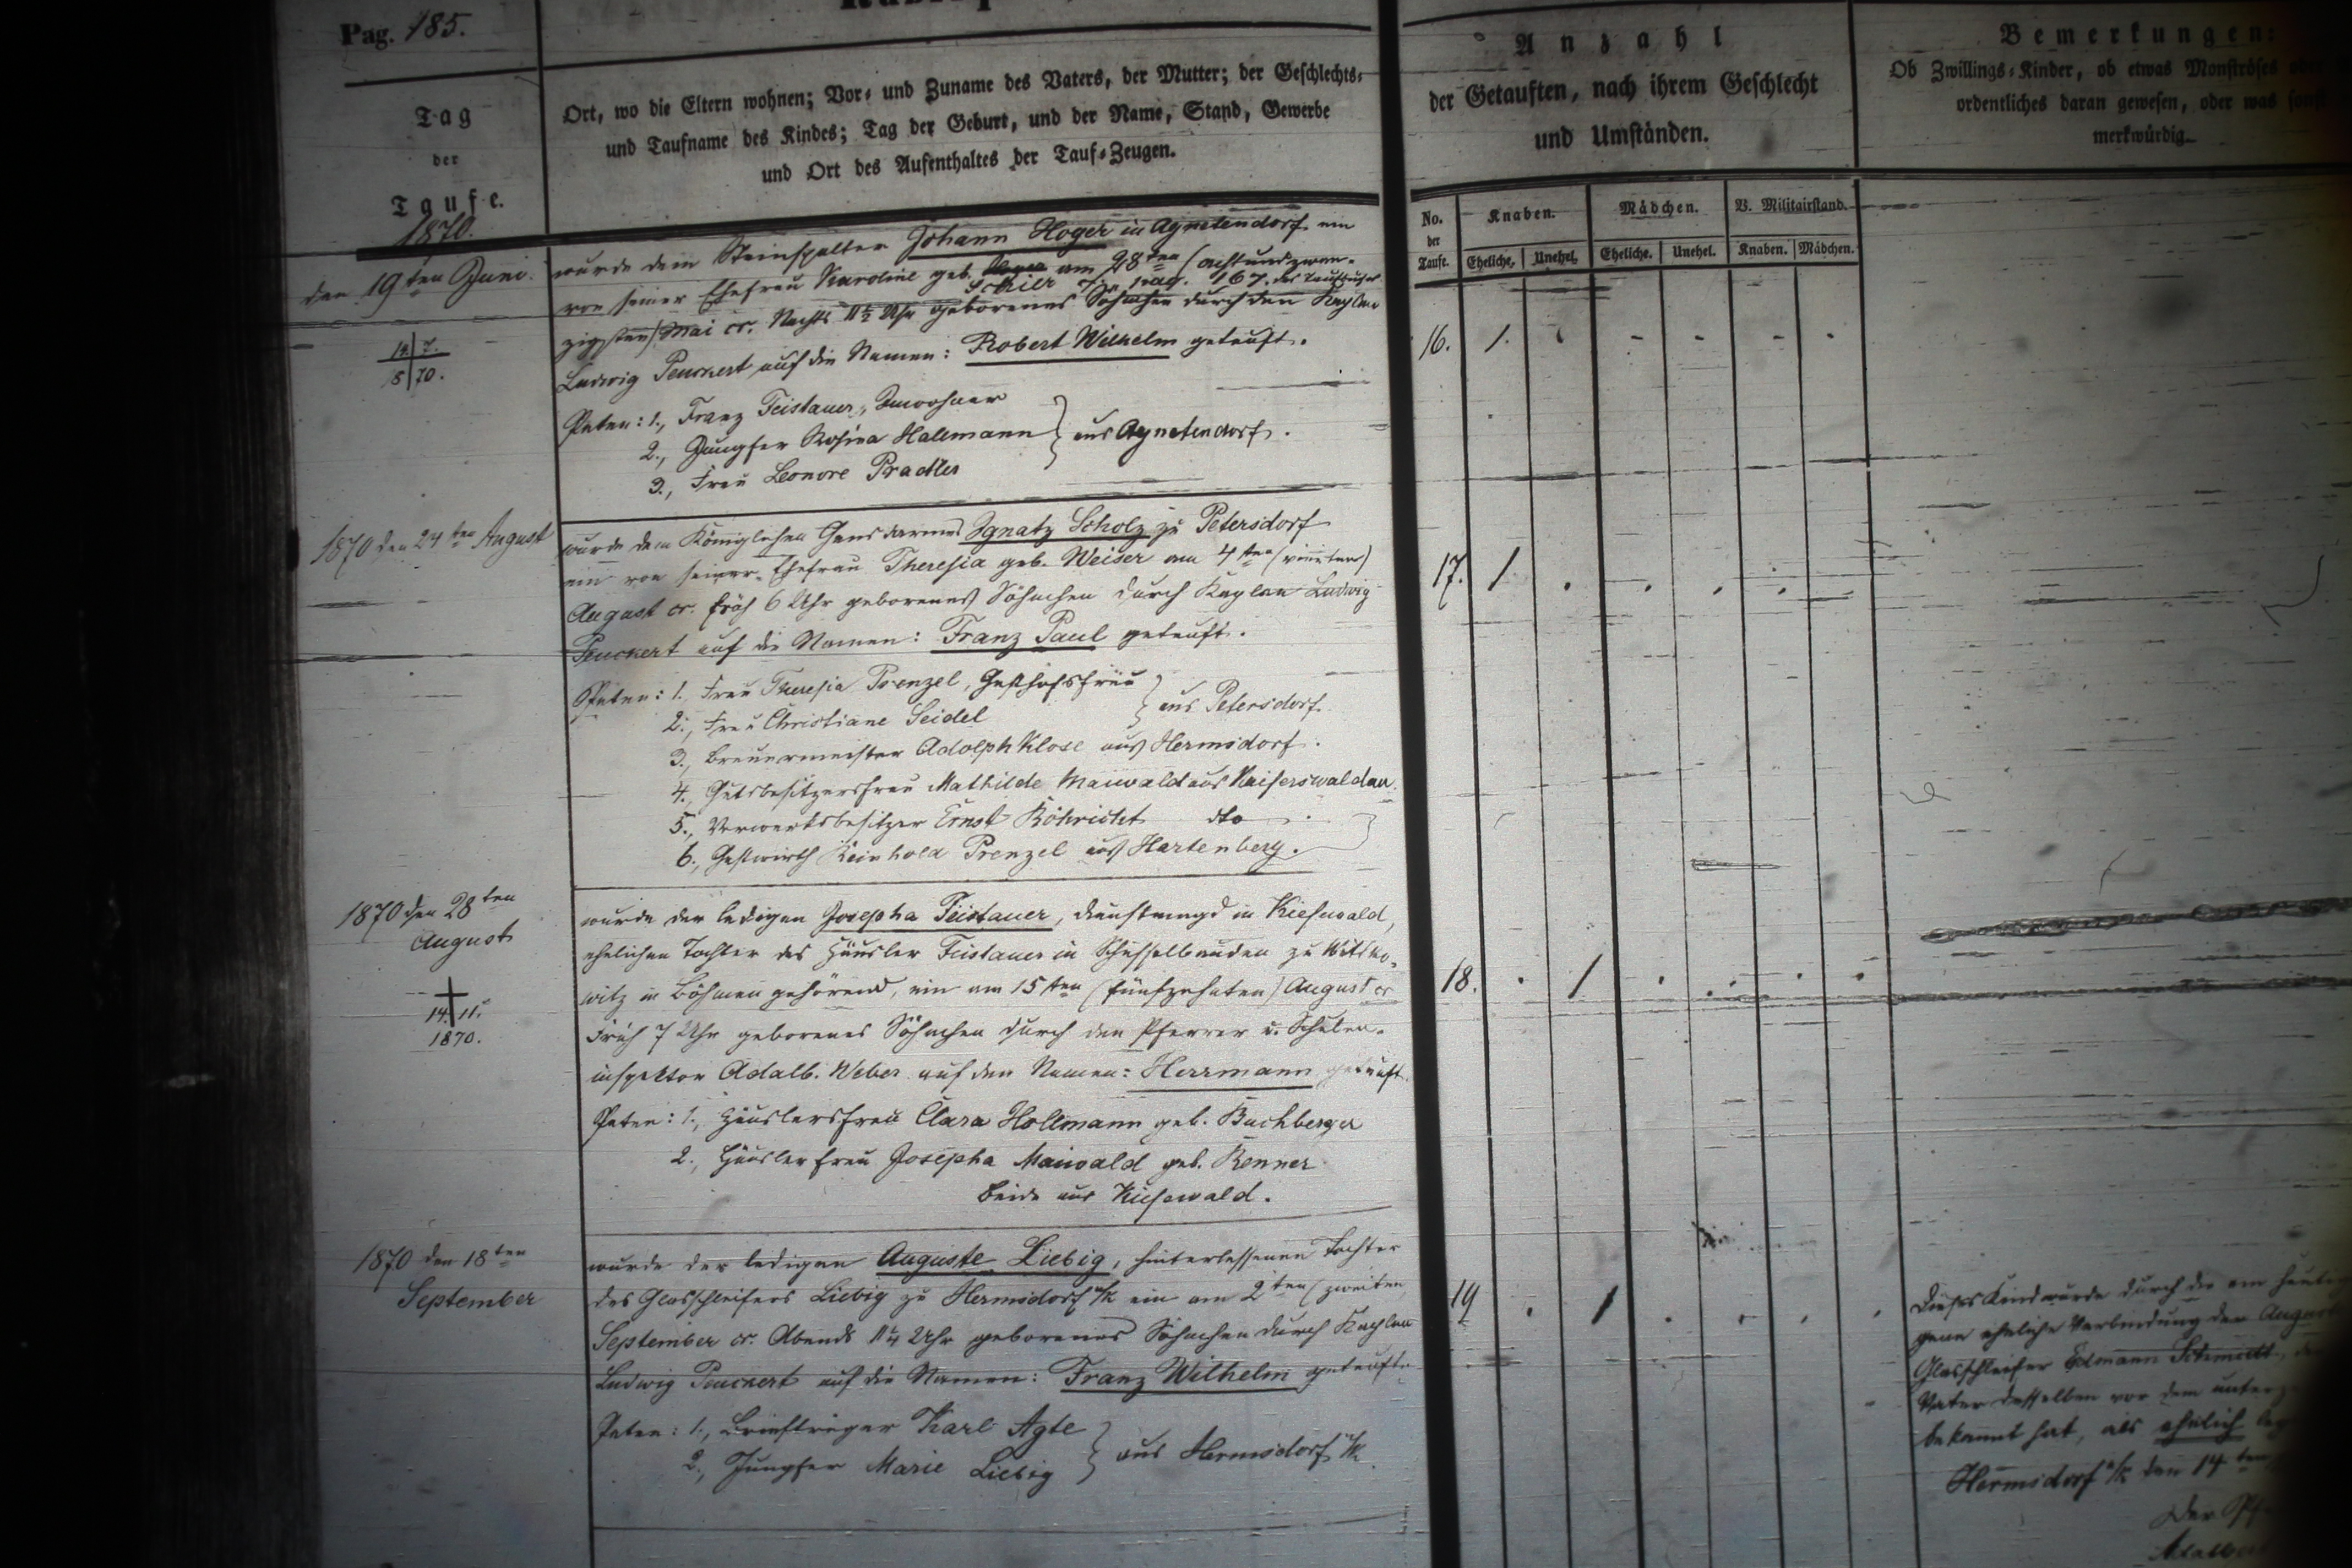 Pag. 185.
Tag
der
Taufe.
1870.
Ort, wo die Eltern wohnen; Vor- und Zuname des Vaters, der Mutter; der Geschlechts-
und Taufname des Kindes; Tag der Geburt, und der Name, Stand, Gewerbe
und Ort des Aufenthaltes der Tauf-Zeugen.
Anzahl
der Getauften, nach ihrem Geschlecht
und Umständen.
Bemerkungen:
Ob Zwillings-Kinder, ob etwas Monströses
ordentliches daran gewesen, oder was
merkwürdig.
No. der Taufe.
Knaben. Mädchen. V. Militairstand.
Eheliche. Unehel. Eheliche. Unehel. Knaben. Mädchen.
den 19ten Juni.
wurde dem Steinspalter Johann Hoger in Agnetendorf ein
von seiner Ehefrau Karoline geb. am 28ten (achtundzwan-
Schier pag. 167. des Taufbuches
zigsten) Mai cr. Nachts 11½ Uhr geborenes Söhnchen durch den Kaplan
Ludwig Peuckert auf die Namen: Robert Wilhelm getauft.
Paten: 1., Franz Feistauer, Inwohner
2., Jungfer Rosina Hallmann } aus Agnetendorf.
3., Frau Leonore Pradler
16. 1.
1870 den 24ten August
wurde dem Königlichen Gensdarmes Ignatz Scholz zu Petersdorf
ein von seiner Ehefrau Theresia geb. Weiser am 4ten (vierten)
August cr. früh 6 Uhr geborenes Söhnchen durch Kaplan Ludwig
Peuckert auf die Namen: Franz Paul getauft.
Paten: 1. Frau Theresia Prenzel, Gasthofsfrau
2., Frau Christiane Seidel } aus Petersdorf.
3., Brauermeister Adolph Klose aus Hermsdorf.
4., Gutsbesitzersfrau Mathilde Maiwald aus Kaiserswaldau.
5., Vorwerksbesitzer Ernst Röhricht dto.
6., Gastwirth Reinhold Prenzel aus Hartenberg.
17. 1
1870 den 28ten
August
14. 11.
1870.
wurde der ledigen Josepha Feistauer, Dienstmagd in Kiesewald,
ehelichen Tochter des Häusler Feistauer in Schüsselbauden zu Witko-
witz in Böhmen gehörend, ein am 15ten (fünfzehnten) August cr
Früh 7 Uhr geborenes Söhnchen durch den Pfarrer u. Schulen-
inspektor Adalb. Weber auf den Namen: Herrmann getauft.
Paten: 1., Häuslersfrau Clara Hollmann geb. Buchberger
2., Häuslerfrau Josepha Maiwald geb. Renner
beide aus Kiesewald.
18. 1
1870 den 18ten
September
wurde der ledigen Auguste Liebig, hinterlassenen Tochter
des Glasschleifers Liebig zu Hermsdorf u/K ein am 2ten (zweiten
September cr. Abends 11¼ Uhr geborenes Söhnchen durch Kaplan
Ludwig Peuckert auf die Namen: Franz Wilhelm getauft.
Paten: 1., Briefträger Karl Agte
2., Jungfer Marie Liebig } aus Hermsdorf u/K.
19 1
Dieses Kind wurde durch die am heutigen
eheliche Verbindung der
Glasschleifer Edmann Schmidt,
Vater desselben vor dem
bekannt hat, als ehelich
Hermsdorf u/K den 14ten
Der